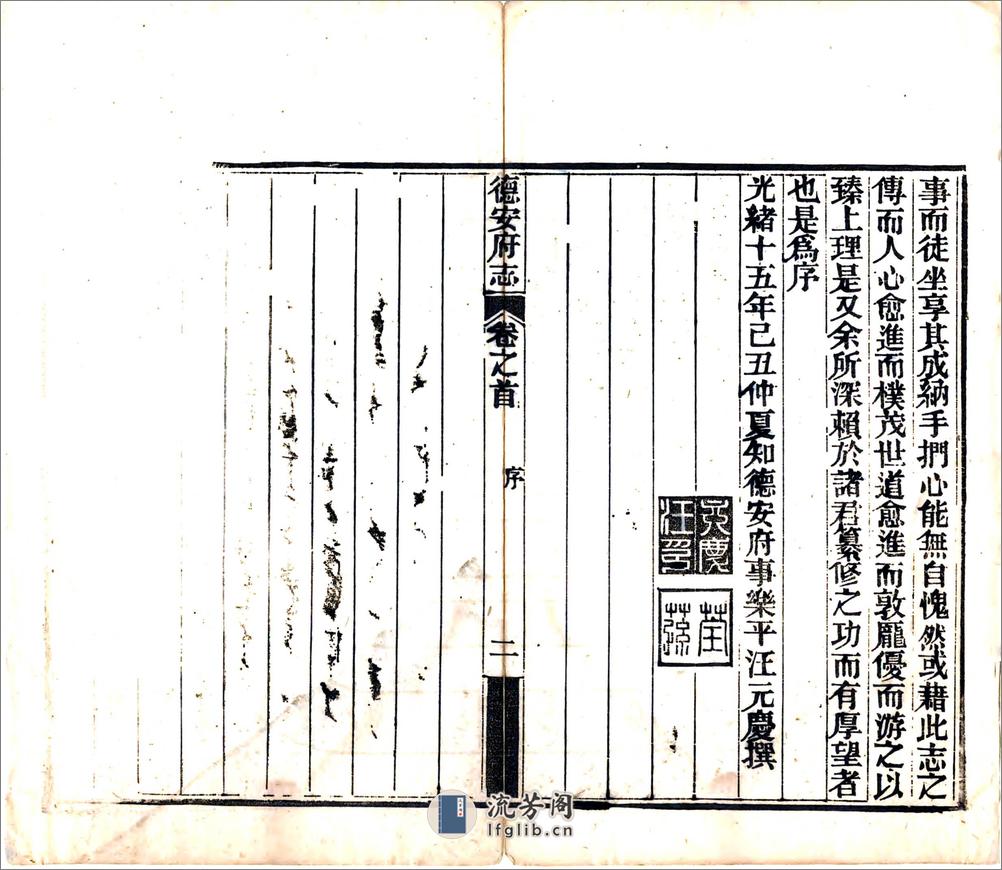 事而徒坐享其成納手捫心能無自愧然或藉此志之
傳而人心愈進而樸茂世道愈進而敦龐優而游之以
臻上理是又余所深賴於諸君纂修之功而有厚望者
也是爲序
光緒十五年己丑仲夏知德安府事樂平汪元慶撰
德安府志 卷之首 序 二
流芳阁
lfglib.cn